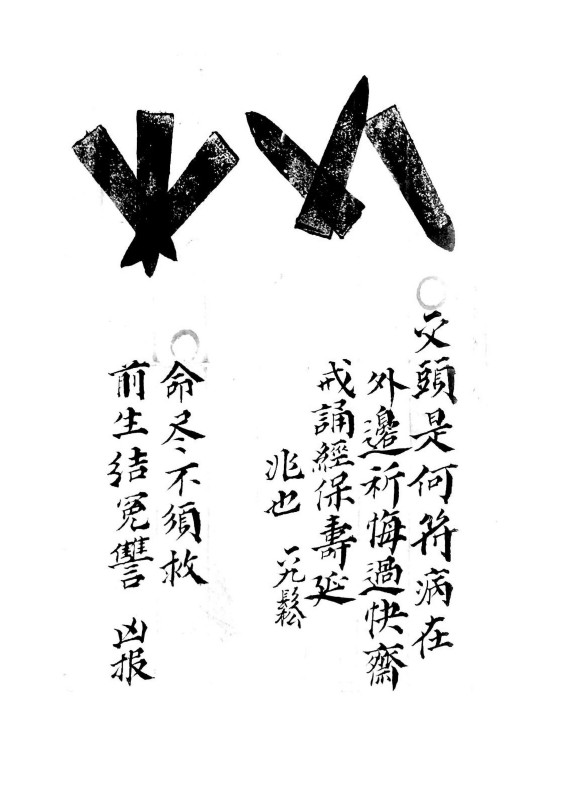 交頭是何符病在
外邊祈悔過快齋
戒誦經保壽延
兆也 鬆
命尽不須救
前生结冤讐 凶报